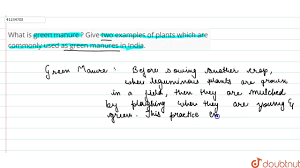 412145702
What is green manure ? Give two examples of plants which are
commonly used as green manures in India.
Green Maure : Before sowing another crop,
when leguminous plants are grown
in a field, then they are mulched
by ploughing when they are young &
green. This practice
doubtnut